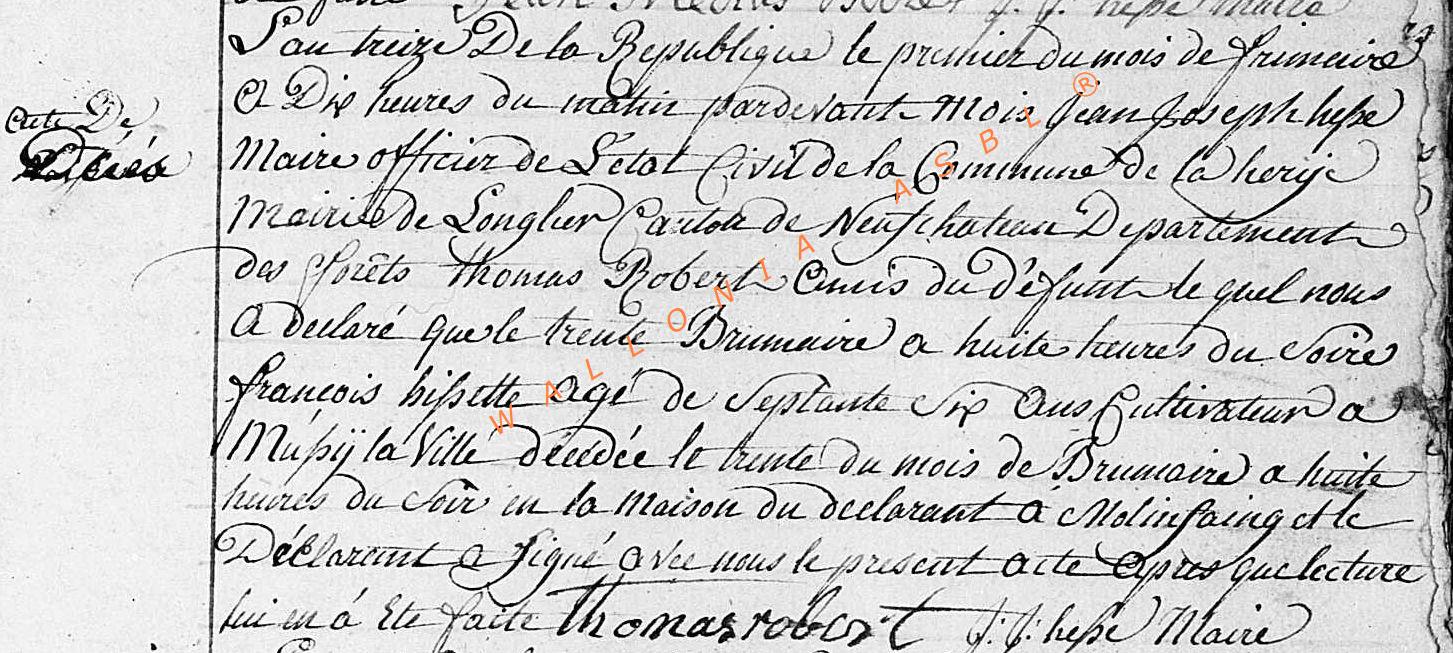 J. J. hesse maire
L'an treize De la Republique le premier du mois de frimaire
a Dix heures du matin pardevant Mois Jean Joseph hesse
acte De
Décès
Maire officier de L'etat Civil de la Commune de la herije
Mairie de Longlier Canton de Neufchateau Departement
des fforêts Thomas Robert amis du défunt le quel nous
a declaré que le trente Brumaire a huite heures du soire
françois hissette agé de septante six ans Cultivateur a
Mussÿ la Ville décédée le trente du mois de Brumaire a huite
heures du soir en la maison du declarant a Molinfaing et le
Déclarant a signé avec nous le present acte apres que lecture
lui en á Eté faite thomas robert J: J: hesse Maire
WALLONIA ASBL ®